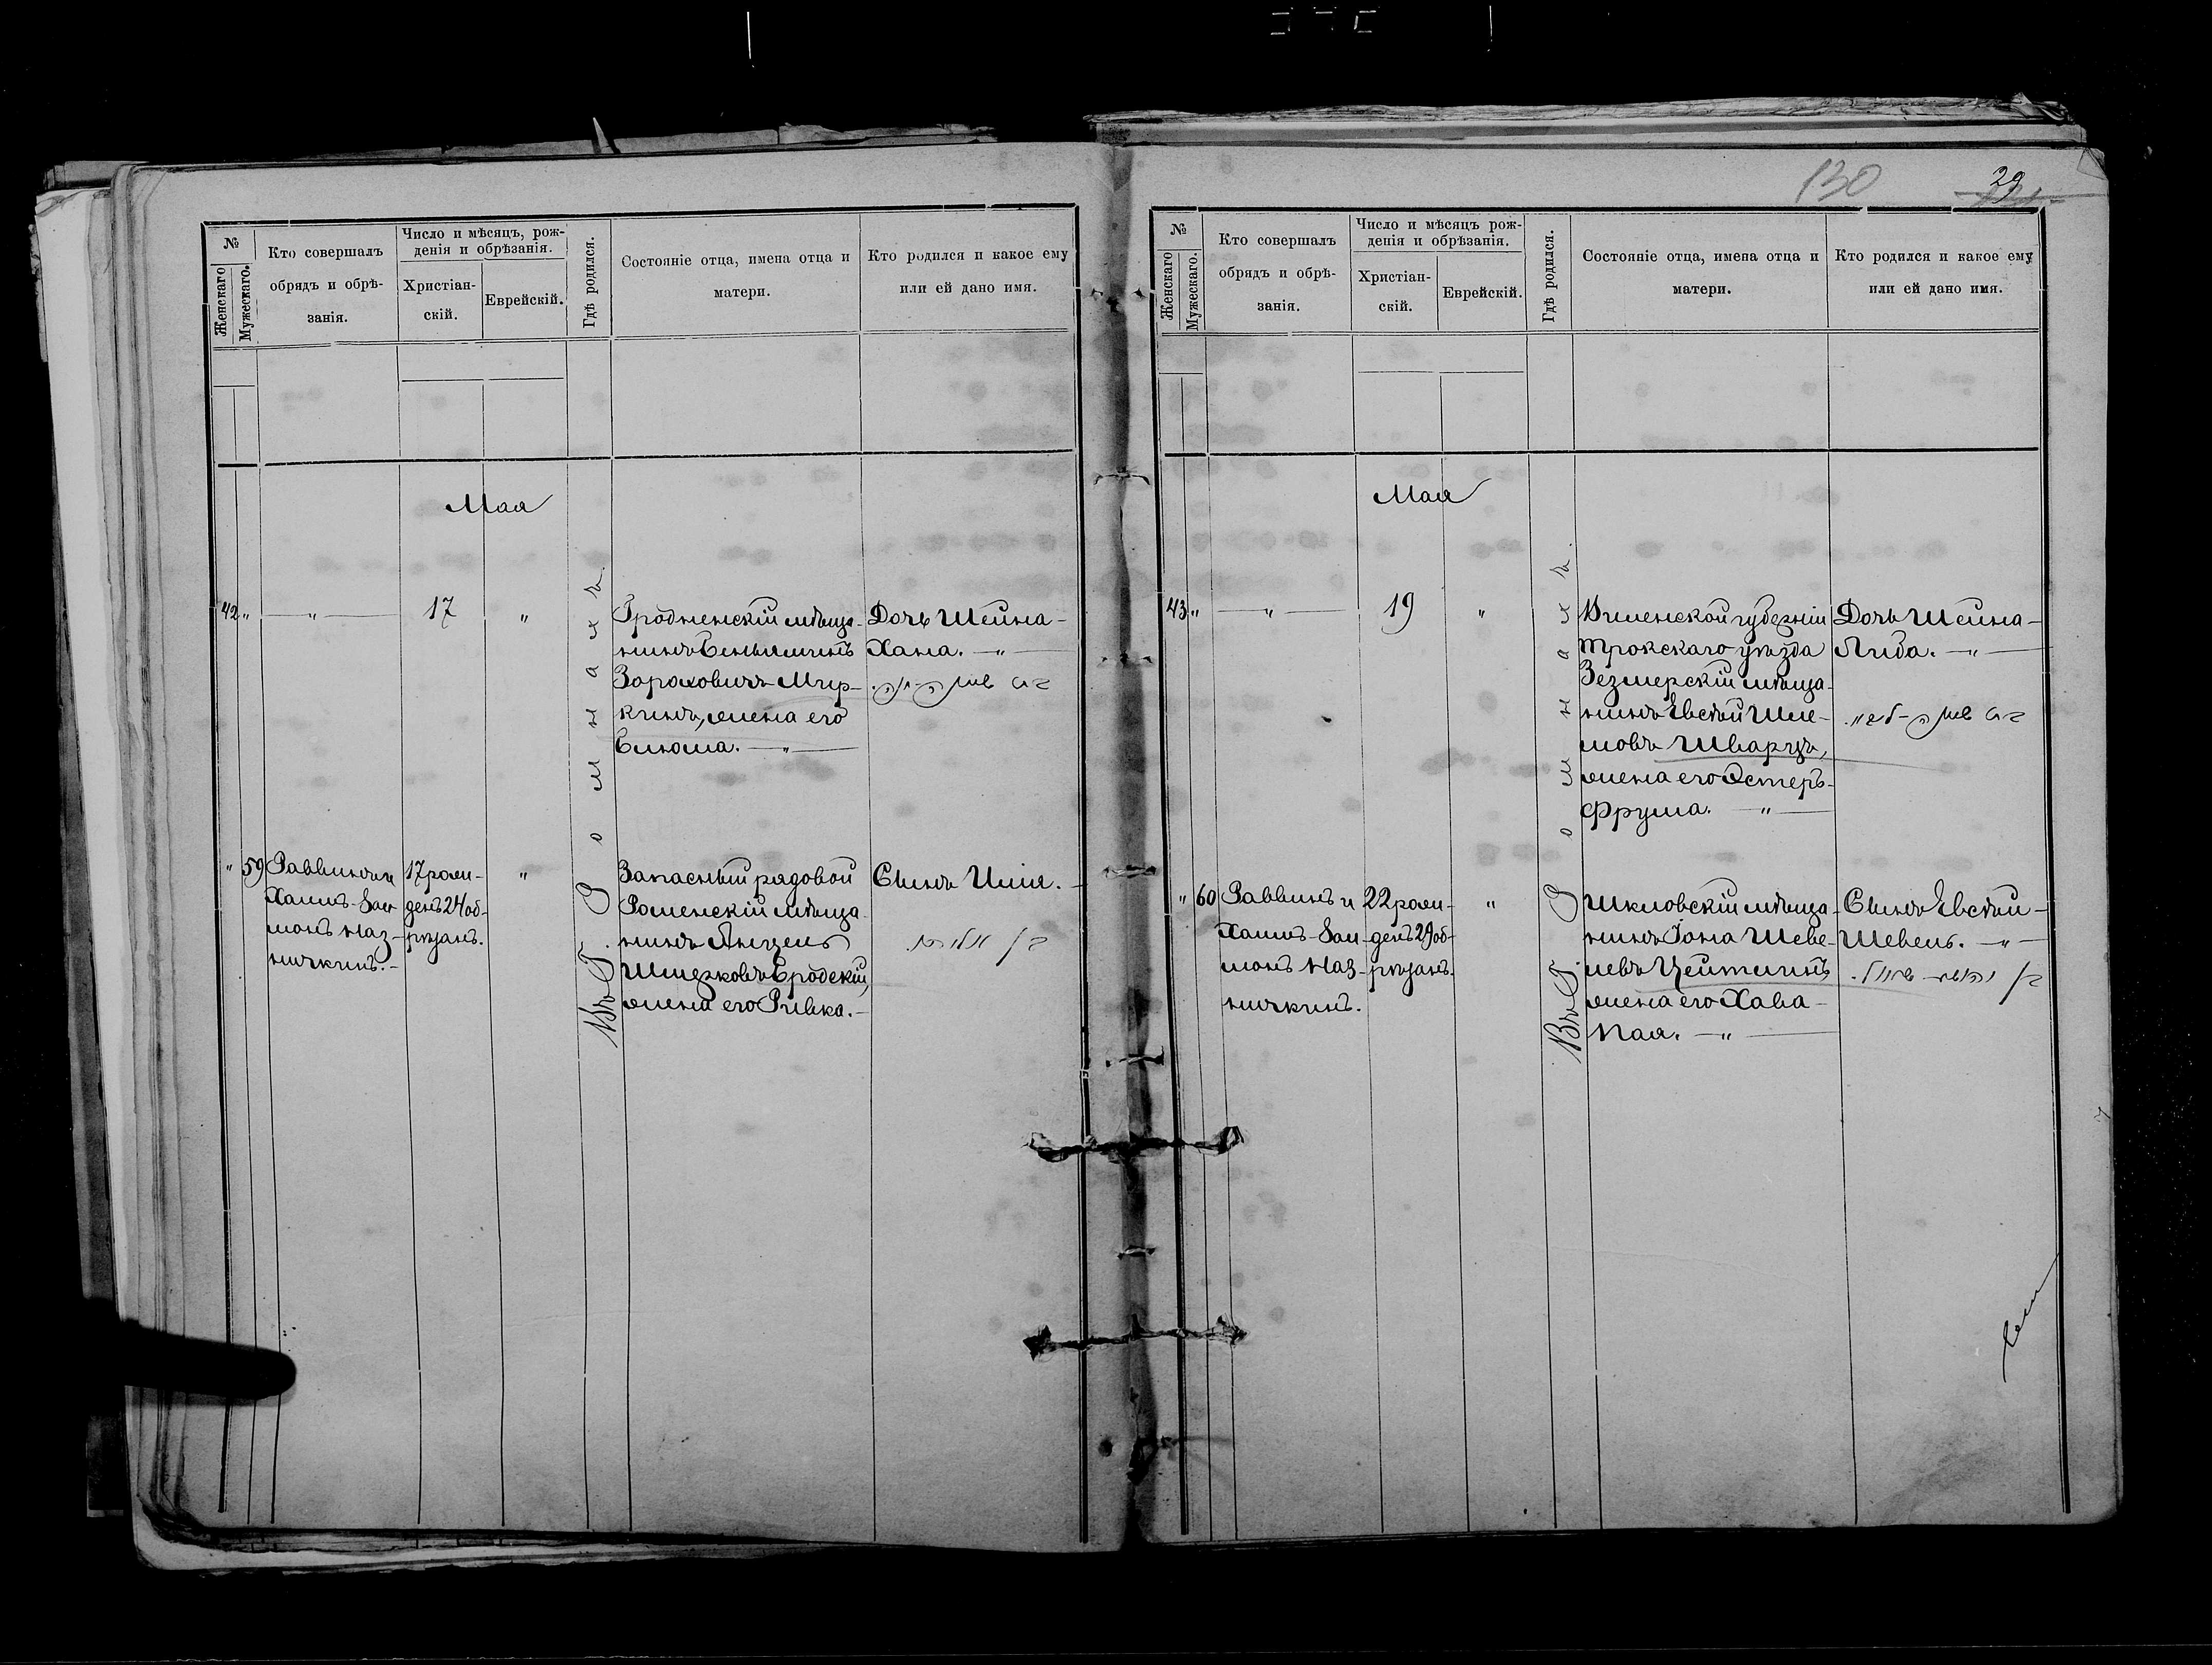 №
Женскаго
Мужескаго.
Кто совершалъ
обрядъ и обрѣ-
занія.
Число и мѣсяцъ, рож-
денія и обрѣзанія.
Христіан-
скій.
Еврейскій.
Гдѣ родился.
Состояніе отца, имена отца и
матери.
Кто родился и какое ему
или ей дано имя.
Мая
42 " " 17 "
Гродненскій мѣща-
нинъ Беньяминъ
Зораховичъ Мир-
кинъ, жена его
Блюма. "
Дочь Шейна-
Хана. "
59
Раввинъ и
Хаимъ-Зал
монъ Наз-
ничкинъ.-
17 рож-
денъ 24 об-
рѣзанъ.
"
Запасный рядовой
Роменскій мѣща-
нинъ Янкель
Шмерковъ Бродскій,
жена его Ривка.-
Сынъ Илія.
Въ Г. Ромнахъ.
130
29
№
Женскаго
Мужескаго.
Кто совершалъ
обрядъ и обрѣ-
занія.
Число и мѣсяцъ рож-
денія и обрѣзанія.
Христіан-
скій.
Еврейскій.
Гдѣ родился.
Состояніе отца, имена отца и
матери.
Кто родился и какое ему
или ей дано имя.
Мая
43 " " 19 "
Виленской губерніи
Трокскаго уѣзда
мѣща-
нинъ Евсѣй Шле-
мовъ Шварцъ,
жена его Эстеръ-
Фрума. "
Дочь Шейна-
Либа. "
" 60
Раввинъ и
Хаимъ-Зал-
монъ Наз-
ничкинъ.
22 рож-
денъ 29 об-
рѣзанъ.
"
Шкловскій мѣща-
нинъ Іона Шеве-
левъ Цейтлинъ,
жена его Хава-
Пая. "
Сынъ Евсѣй-
Шевель. "
Въ Г. Ромнахъ.